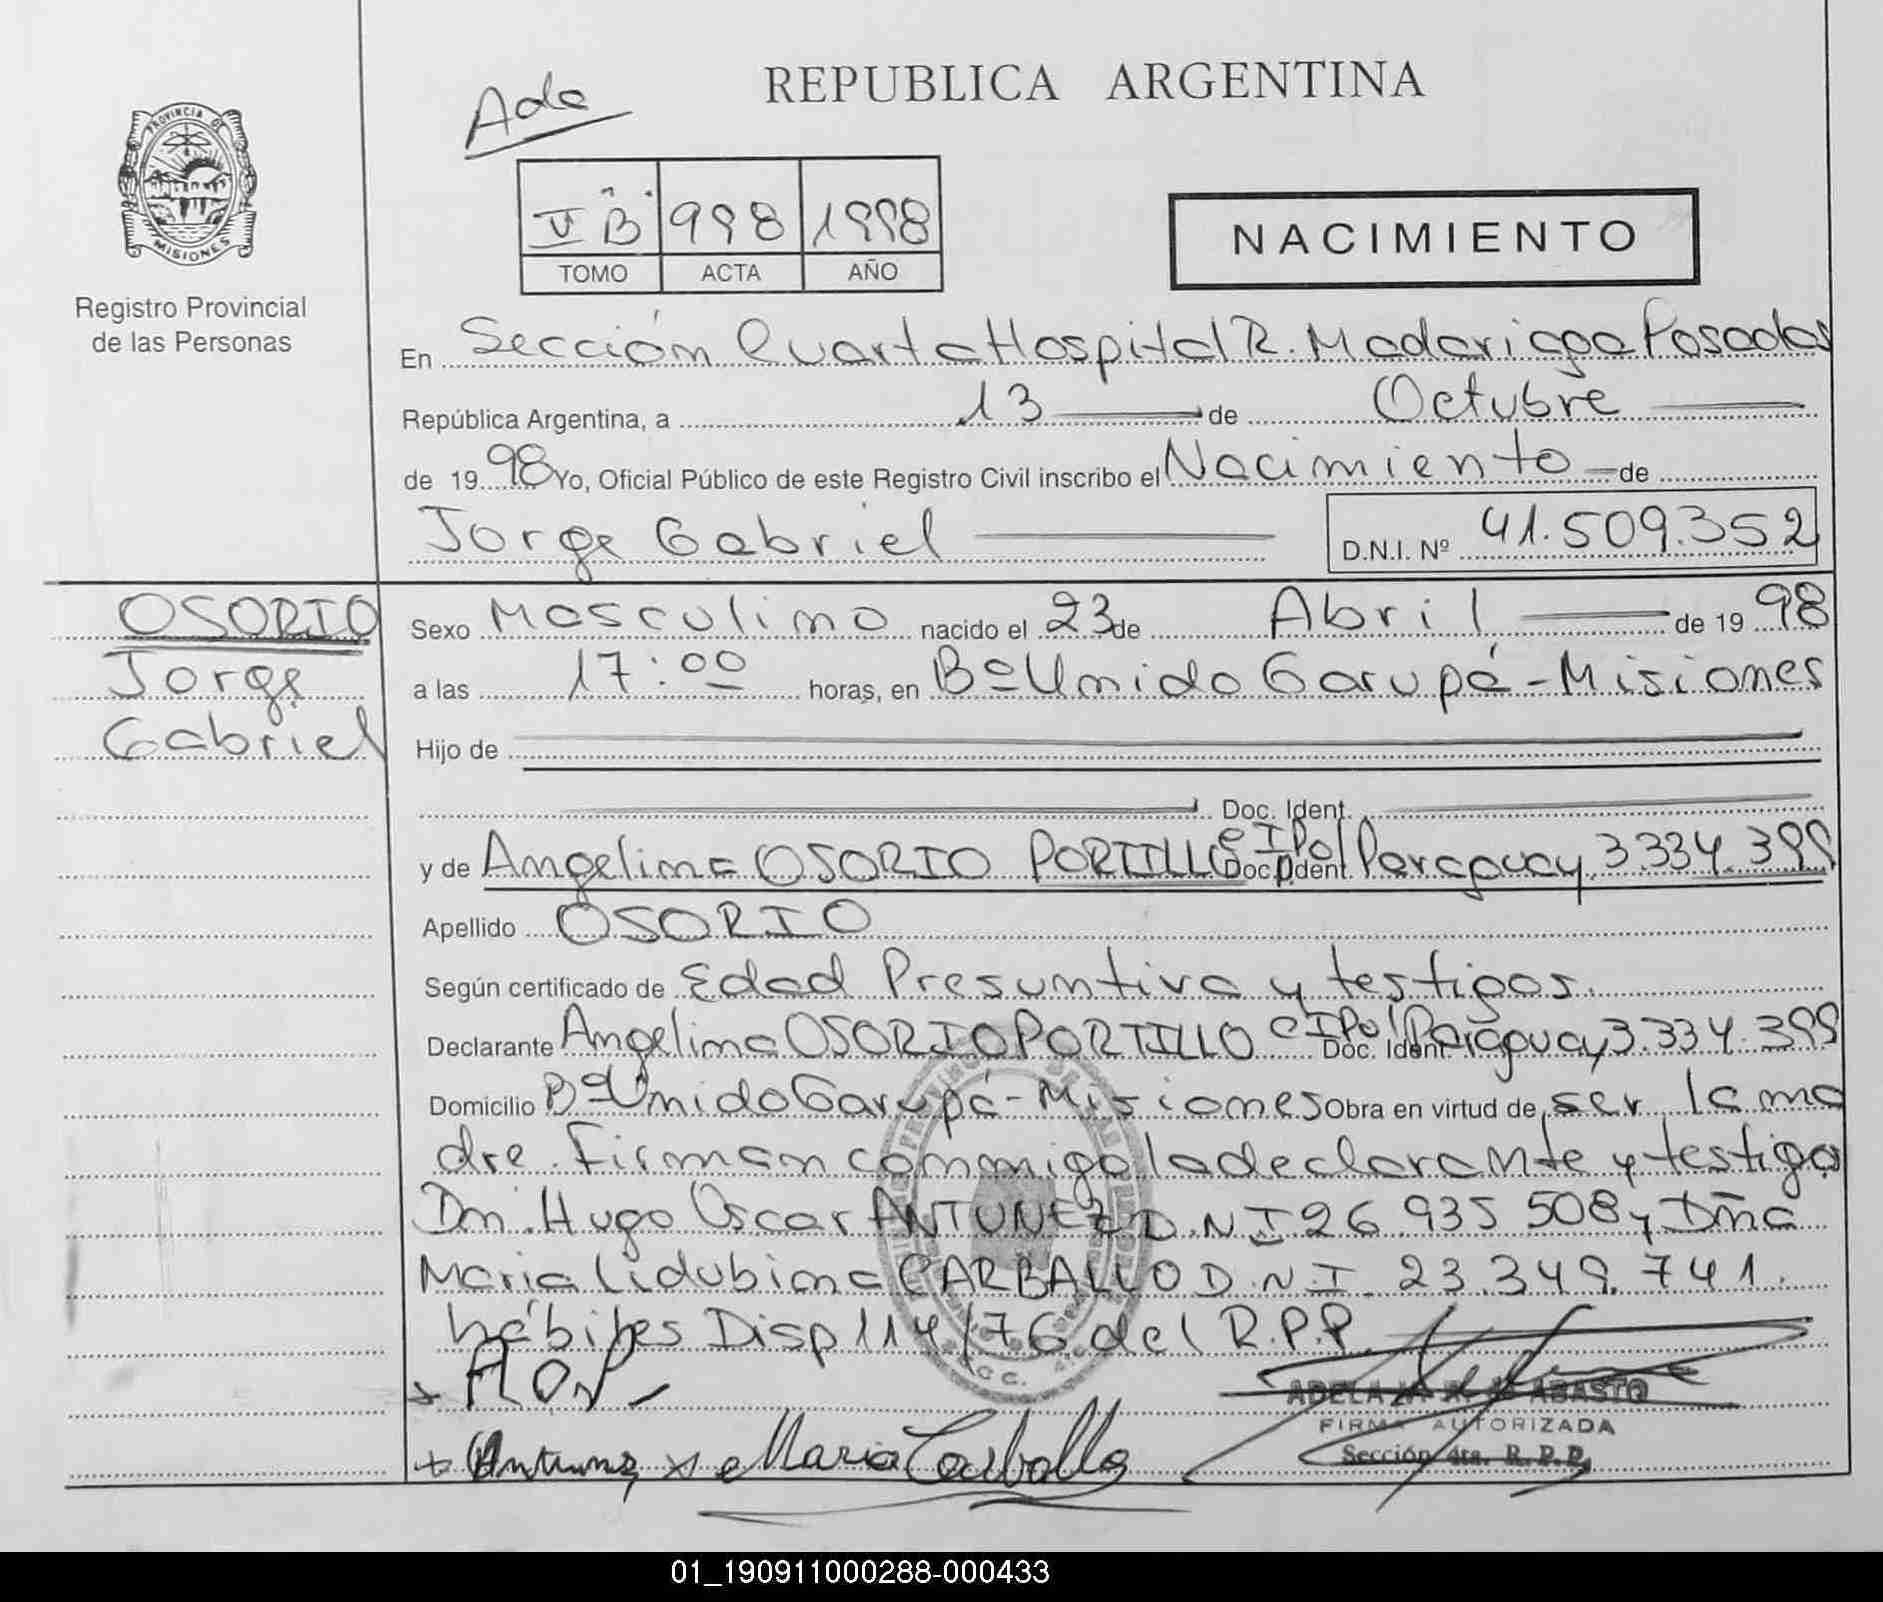 REPUBLICA ARGENTINA
Ada
PROVINCIA DE
MISIONES
V B 998 1998
TOMO ACTA AÑO
NACIMIENTO
Registro Provincial
de las Personas
En Sección Cuarta Hospital R. Madariaga Posadas
República Argentina, a 13 de Octubre
de 19 98 Yo, Oficial Público de este Registro Civil inscribo el Nacimiento de
Jorge Gabriel D.N.I. Nº 41.509.352
OSORIO
Jorge
Gabriel
Sexo Masculino nacido el 23 de Abril de 19 98
a las 17:00 horas, en Bº Unido Garupá - Misiones
Hijo de
Doc. Ident.
y de Angelina OSORIO PORTILLO Doc. Ident. CIPol Paraguay 3.334.399
Apellido OSORIO
Según certificado de Edad Presuntiva y testigos.
Declarante Angelina OSORIO PORTILLO Doc. Ident. CIPol Paraguay 3.334.399
Domicilio Bº Unido Garupá - Misiones Obra en virtud de ser la ma
dre. Firman conmigo la declarante y testigos
Dn. Hugo Oscar ANTUNEZ D.N.I 26.935 508 y Dña
Maria Lidubina CARBALLO D.N.I. 23.349.741.
hábiles Disp 114/76 del R.P.P.
AOP
Antunez x Maria Carballo
FIRMA AUTORIZADA
Sección 4ta. R.P.P.
01_190911000288-000433